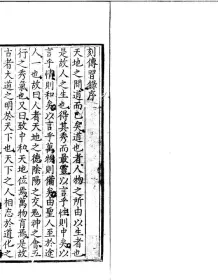 刻傳習錄序
天地之間道而已矣道也者人物之所由以生者也
是故人之生也得其秀而最靈以言乎性則中矣以
言乎情則和矣以言乎萬物則備矣由聖人至於途
人一也故曰人者天地之德陰陽之交鬼神之會五
行之秀氣也又曰致中和天地位焉萬物育焉是故
古者大道之明於天下也天下之人相忘於道化之